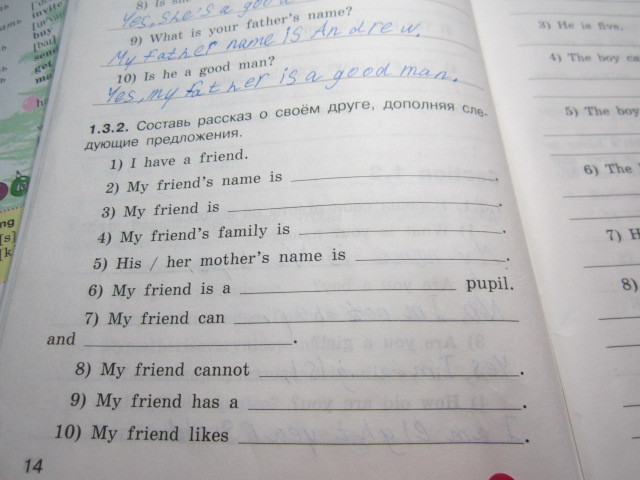 8) Is she
Yes, she's a good
9) What is your father's name?
My father name is Andrew.
10) Is he a good man?
Yes, my father is a good man.
1.3.2. Составь рассказ о своём друге, дополняя сле-
дующие предложения.
1) I have a friend.
2) My friend's name is ____.
3) My friend is ____.
4) My friend's family is ____.
5) His / her mother's name is ____.
6) My friend is a ____ pupil.
7) My friend can ____
and ____.
8) My friend cannot ____.
9) My friend has a ____.
10) My friend likes ____.
14
3) He is five.
4) The boy ca
5) The boy
6) The
7) H
8)
invite
buy
ng
[s]
[k